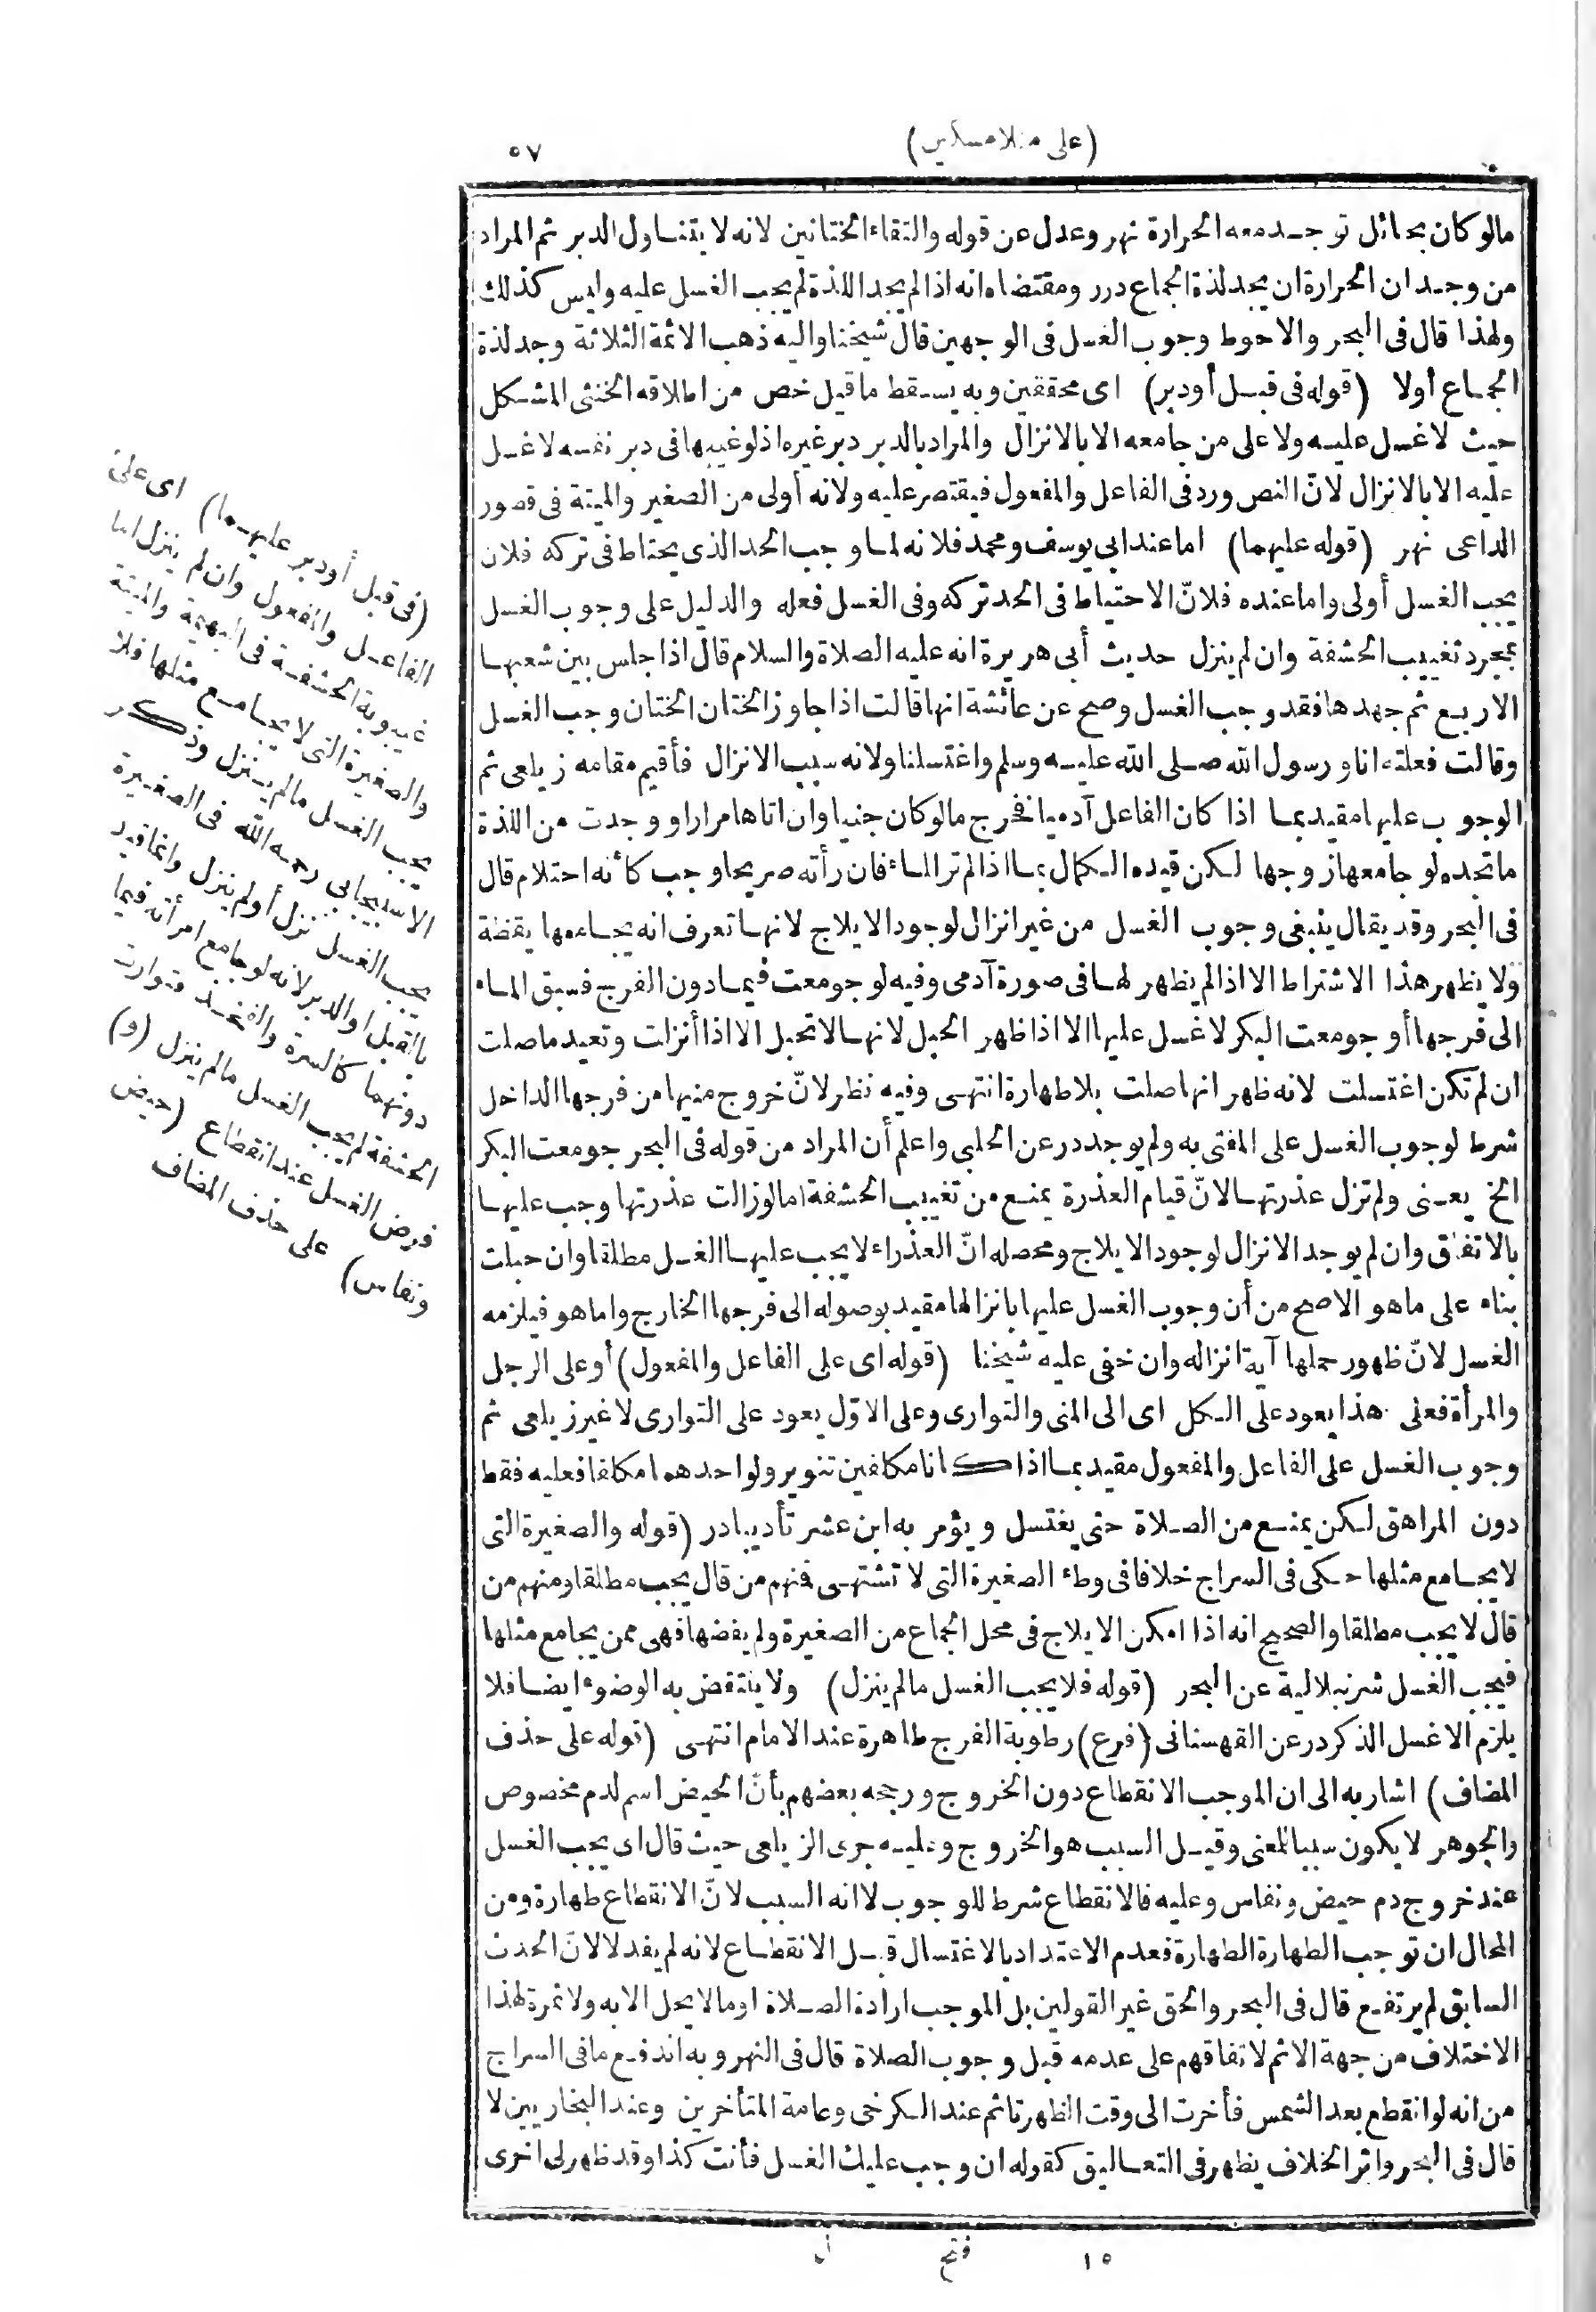 (على منلا مسكين)
٥٧
مالو كان بحائل توجد معه الحرارة نهر وعدل عن قوله والتقاء الختانين لانه لا يتناول الدبر ثم المراد
من وجدان الحرارة ان يجد لذة الجماع درر ومقتضاه انه اذا لم يجد اللذة لم يجب الغسل عليه وليس كذلك
ولهذا قال فى البحر والاحوط وجوب الغسل فى الوجهين قال شيخنا واليه ذهب الائمة الثلاثة وجد لذة
الجماع أولا (قوله فى قبل أودبر) اى محققين وبه يسقط ما قيل خص من اطلاقه الخنثى المشكل
حيث لا غسل عليه ولا على من جامعه الا بالانزال والمراد بالدبر دبر غيره اذ لو غيبها فى دبر نفسه لا غسل
عليه الا بالانزال لانّ النص ورد فى الفاعل والمفعول فيقتصر عليه ولانه أولى من الصغير والميتة فى قصور
الداعى نهر (قوله عليهما) اما عند ابى يوسف ومحمد فلانه لما وجب الحد الذى يحتاط فى تركه فلان
يجب الغسل أولى واما عنده فلانّ الاحتياط فى الحد تركه وفى الغسل فعله والدليل على وجوب الغسل
بمجرد تغييب الحشفة وان لم ينزل حديث أبى هريرة انه عليه الصلاة والسلام قال اذا جلس بين شعبها
الاربع ثم جهدها فقد وجب الغسل وصح عن عائشة انها قالت اذا جاوز الختان الختان وجب الغسل
وقالت فعلته انا ورسول الله صلى الله عليه وسلم واغتسلنا ولانه سبب الانزال فأقيم مقامه زيلعى ثم
الوجوب عليها مقيد بما اذا كان الفاعل آدميا فخرج مالو كان جنيا وان اتاها مرارا ووجدت من اللذة
ما تجده لو جامعها زوجها لكن قيده الكمال بما اذا لم تر الماء فان رأته صريحا وجب كأنه احتلام قال
فى البحر وقد يقال ينبغى وجوب الغسل من غير انزال لوجود الايلاج لانها تعرف انه يجامعها يقظة
ولا يظهر هذا الاشتراط الا اذا لم يظهر لها فى صورة آدمى وفيه لو جومعت فيما دون الفرج فسبق الماء
الى فرجها أو جومعت البكر لا غسل عليها الا اذا ظهر الحبل لانها لا تحبل الا اذا أنزلت وتعيد ما صلت
ان لم تكن اغتسلت لانه ظهر انها صلت بلا طهارة انتهى وفيه نظر لانّ خروج منيها من فرجها الداخل
شرط لوجوب الغسل على المفتى به ولم يوجد در عن الحلبى واعلم أن المراد من قوله فى البحر جومعت البكر
الخ يعنى ولم تزل عذرتها لانّ قيام العذرة يمنع من تغييب الحشفة اما لو زالت عذرتها وجب عليها
بالاتفاق وان لم يوجد الانزال لوجود الايلاج ومحصله انّ العذراء لا يجب عليها الغسل مطلقا وان حبلت
بناء على ما هو الاصح من أن وجوب الغسل عليها بانزالها مقيد بوصوله الى فرجها الخارج واما هو فيلزمه
الغسل لانّ ظهور حملها آية انزاله وان خفى عليه شيخنا (قوله اى على الفاعل والمفعول) أو على الرجل
والمرأة فعلى هذا يعود على الكل اى الى المنى والتوارى وعلى الاوّل يعود على التوارى لا غير زيلعى ثم
وجوب الغسل على الفاعل والمفعول مقيد بما اذا كانا مكلفين تنوير ولو احدهما مكلفا فعليه فقط
دون المراهق لكن يمنع من الصلاة حتى يغتسل ويؤمر به ابن عشر تأديبا در (قوله والصغيرة التى
لا يجامع مثلها حكى فى السراج خلافا فى وطء الصغيرة التى لا تشتهى فمنهم من قال يجب مطلقا ومنهم من
قال لا يجب مطلقا والصحيح انه اذا امكن الايلاج فى محل الجماع من الصغيرة ولم يفضها فهى ممن يجامع مثلها
فيجب الغسل شرنبلالية عن البحر (قوله فلا يجب الغسل ما لم ينزل) ولا ينتقض به الوضوء ايضا فلا
يلزم الا غسل الذكر در عن القهستانى (فرع) رطوبة الفرج طاهرة عند الامام انتهى (قوله على حذف
المضاف) اشار به الى ان الموجب الانقطاع دون الخروج ورجحه بعضهم بأنّ الحيض اسم لدم مخصوص
والجوهر لا يكون سببا للمعنى وقيل السبب هو الخروج وعليه جرى الزيلعى حيث قال اى يجب الغسل
عند خروج دم حيض ونفاس وعليه فالانقطاع شرط للوجوب لا انه السبب لانّ الانقطاع طهارة ومن
المحال ان توجب الطهارة الطهارة فعدم الاعتداد بالاغتسال قبل الانقطاع لانه لم يفد لا لانّ الحدث
السابق لم يرتفع قال فى البحر والحق غير القولين بل الموجب ارادة الصلاة او ما لا يحل الا به ولا ثمرة لهذا
الاختلاف من جهة الاثم لاتفاقهم على عدمه قبل وجوب الصلاة قال فى النهر وبه اندفع ما فى السراج
من انه لو انقطع بعد الشمس فأخرت الى وقت الظهر تاثم عند الكرخى وعامة المتأخرين وعند البخاريين لا
قال فى البحر واثر الخلاف يظهر فى التعاليق كقوله ان وجب عليك الغسل فأنت كذا وقد ظهر لى اخرى
(فى قبل أودبر عليهما) اى على
الفاعل والمفعول وان لم ينزل اما
غيبوبة الحشفة فى البهيمة والميتة
والصغيرة التى لا يجامع مثلها فلا
يجب الغسل ما لم ينزل وذكر
الاسبيجابى رحمه الله فى الصغيرة
يجب الغسل تنزل أو لم تنزل وانما قيد
بالقبل او الدبر لانه لو جامع امرأته فيما
دونهما كالسرة والفخذ فتوارت
الحشفة لم يجب الغسل ما لم ينزل (و)
فرض الغسل عند انقطاع (حيض
ونفاس) على حذف المضاف
١٥ فتح ل